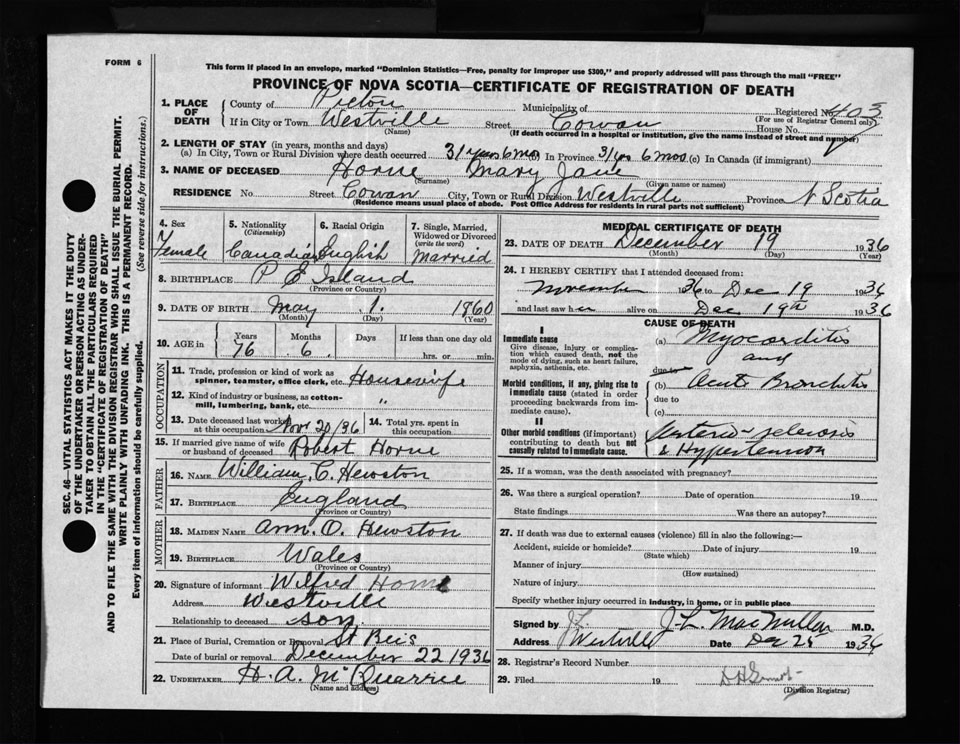 FORM 6
This form if placed in an envelope, marked "Dominion Statistics—Free, penalty for improper use $300," and properly addressed will pass through the mail "FREE"
PROVINCE OF NOVA SCOTIA—CERTIFICATE OF REGISTRATION OF DEATH
SEC. 46—VITAL STATISTICS ACT MAKES IT THE DUTY
OF THE UNDERTAKER OR PERSON ACTING AS UNDER-
TAKER TO OBTAIN ALL THE PARTICULARS REQUIRED
IN THE "CERTIFICATE OF REGISTRATION OF DEATH"
AND TO FILE THE SAME WITH THE DIVISION REGISTRAR WHO SHALL ISSUE THE BURIAL PERMIT.
WRITE PLAINLY WITH UNFADING INK. THIS IS A PERMANENT RECORD.
Every item of information should be carefully supplied. (See reverse side for instructions.)
1. PLACE OF DEATH
County of Pictou Municipality of Registered No. 403
(For use of Registrar General only)
If in City or Town Westville Street Cowan House No.
(Name) (If death occurred in a hospital or institution, give the name instead of street and number)
2. LENGTH OF STAY (in years, months and days)
(a) In City, Town or Rural Division where death occurred 31 yrs 6 mo (b) In Province 31 yrs 6 mos (c) In Canada (if immigrant)
3. NAME OF DECEASED Horne Mary Jane
(Surname) (Given name or names)
RESIDENCE No Street Cowan City, Town or Rural Division Westville Province N Scotia
(Residence means usual place of abode. Post Office Address for residents in rural parts not sufficient)
4. Sex Female
5. Nationality (Citizenship) Canadian
6. Racial Origin English
7. Single, Married, Widowed or Divorced (write the word) Married
8. BIRTHPLACE P E Island
(Province or Country)
9. DATE OF BIRTH May 1. 1860
(Month) (Day) (Year)
10. AGE in Years Months Days If less than one day old
76 6 hrs. or min.
OCCUPATION
11. Trade, profession or kind of work as spinner, teamster, office clerk, etc. Housewife
12. Kind of industry or business, as cotton-mill, lumbering, bank, etc. "
13. Date deceased last worked at this occupation Nov 20/36
14. Total yrs. spent in this occupation
15. If married give name of wife or husband of deceased Robert Horne
FATHER
16. NAME William C. Hewston
17. BIRTHPLACE England
(Province or Country)
MOTHER
18. MAIDEN NAME Ann. O. Hewston
19. BIRTHPLACE Wales
(Province or Country)
20. Signature of informant Wilfred Horne
Address Westville
Relationship to deceased son
21. Place of Burial, Cremation or Removal
Date of burial or removal December 22 1936
22. UNDERTAKER H. A. McQuarrie
(Name and address)
MEDICAL CERTIFICATE OF DEATH
23. DATE OF DEATH December 19 1936
(Month) (Day) (Year)
24. I HEREBY CERTIFY that I attended deceased from:
November 1936 to Dec 19 1936
and last saw her alive on Dec 19th 1936
CAUSE OF DEATH
I
Immediate cause
Give disease, injury or complication which caused death, not the mode of dying, such as heart failure, asphyxia, asthenia, etc.
(a) Myocarditis
and
due to
Morbid conditions, if any, giving rise to immediate cause (stated in order proceeding backwards from immediate cause).
(b) Acute Bronchitis
due to
(c)
II
Other morbid conditions (if important) contributing to death but not causally related to immediate cause.
Arterio-sclerosis
& Hypertension
25. If a woman, was the death associated with pregnancy?
26. Was there a surgical operation? Date of operation 19
State findings Was there an autopsy?
27. If death was due to external causes (violence) fill in also the following:—
Accident, suicide or homicide? Date of injury 19
(State which)
Manner of injury
(How sustained)
Nature of injury
Specify whether injury occurred in industry, in home, or in public place
Signed by J. L. MacMillan M.D.
Address Westville Date Dec 25 1936
28. Registrar's Record Number
29. Filed 19
(Division Registrar)